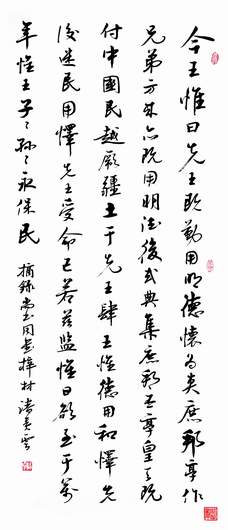 今王惟曰先王既勤用明德懷為夾庶邦享作
兄弟方来亦既用明德後式典集庶邦丕享皇天既
付中國民越厥疆土于先王肆王惟德用和懌先
後迷民用懌先王受命已若茲監惟曰欲至于萬
年惟王子々孫々永保民
摘錄尚書周書梓材